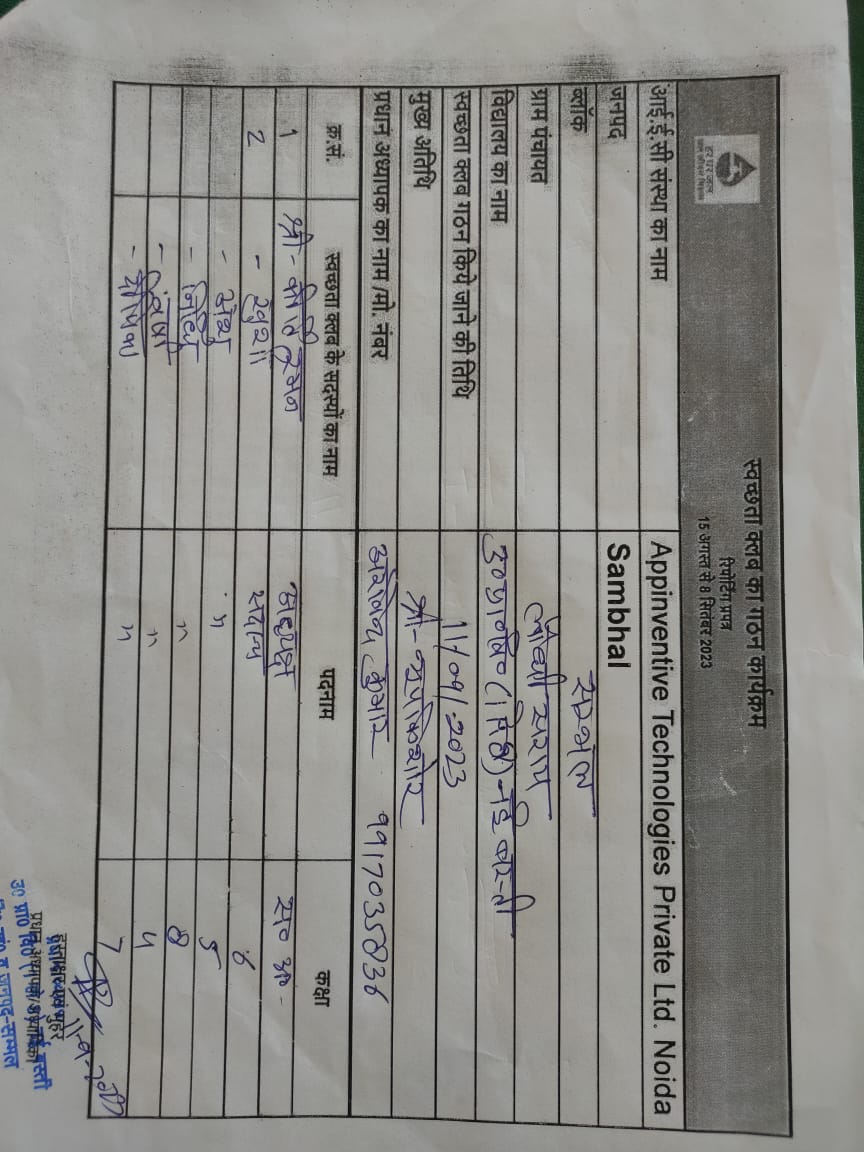 स्वच्छता क्लब का गठन कार्यक्रम
रिपोर्टिंग प्रपत्र
15 अगस्त से 8 सितंबर 2023
हर घर जल
जल जीवन मिशन
आई.ई.सी संस्था का नाम Appinventive Technologies Private Ltd. Noida
जनपद Sambhal
ब्लॉक सम्भल
ग्राम पंचायत सराय
विद्यालय का नाम उ०प्रा०वि० नई बस्ती
स्वच्छता क्लब गठन किये जाने की तिथि 11/09/2023
मुख्य अतिथि श्री-
प्रधान अध्यापक का नाम /मो. नंबर कुमार 9917035836
क्र.सं. स्वच्छता क्लब के सदस्यों का नाम पदनाम कक्षा
1 श्री- अध्यक्ष स० अ०-
2 - खुशी सदस्य 6
- " 5
- निधि " 8
- " 5
- दीपिका " 7
हस्ताक्षर एवं मुहर
प्रधान अध्यापक/अध्यापिका
उ० प्रा० वि० नई बस्ती
जनपद-सम्भल